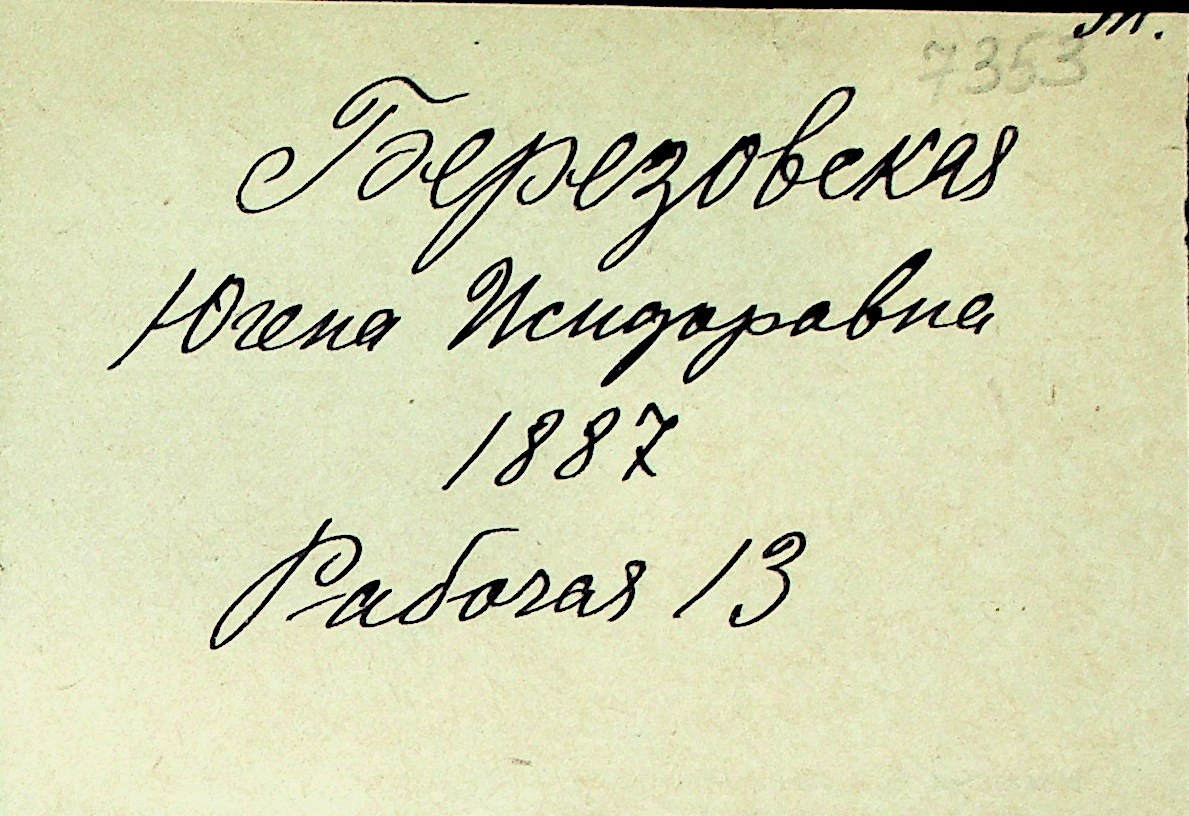 7353
Березовская
Югена Исидоровна
1887
Рабочая 13